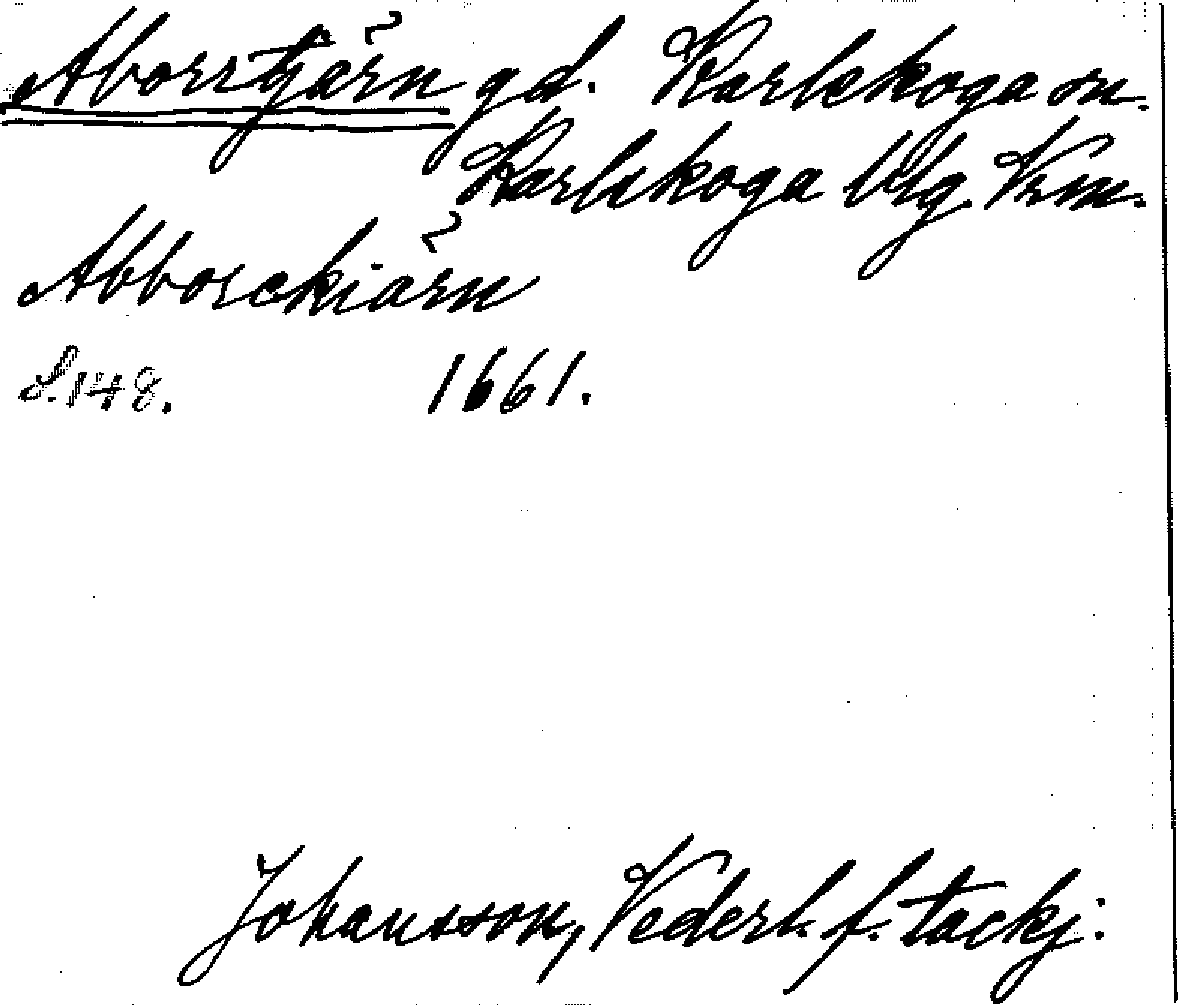 Aborrtjärn gd. Karlskoga sn.
Karlskoga blg. Vrm.
Abborckiärn
S. 148. 1661.
Johansson, Vederl. f. tackj.